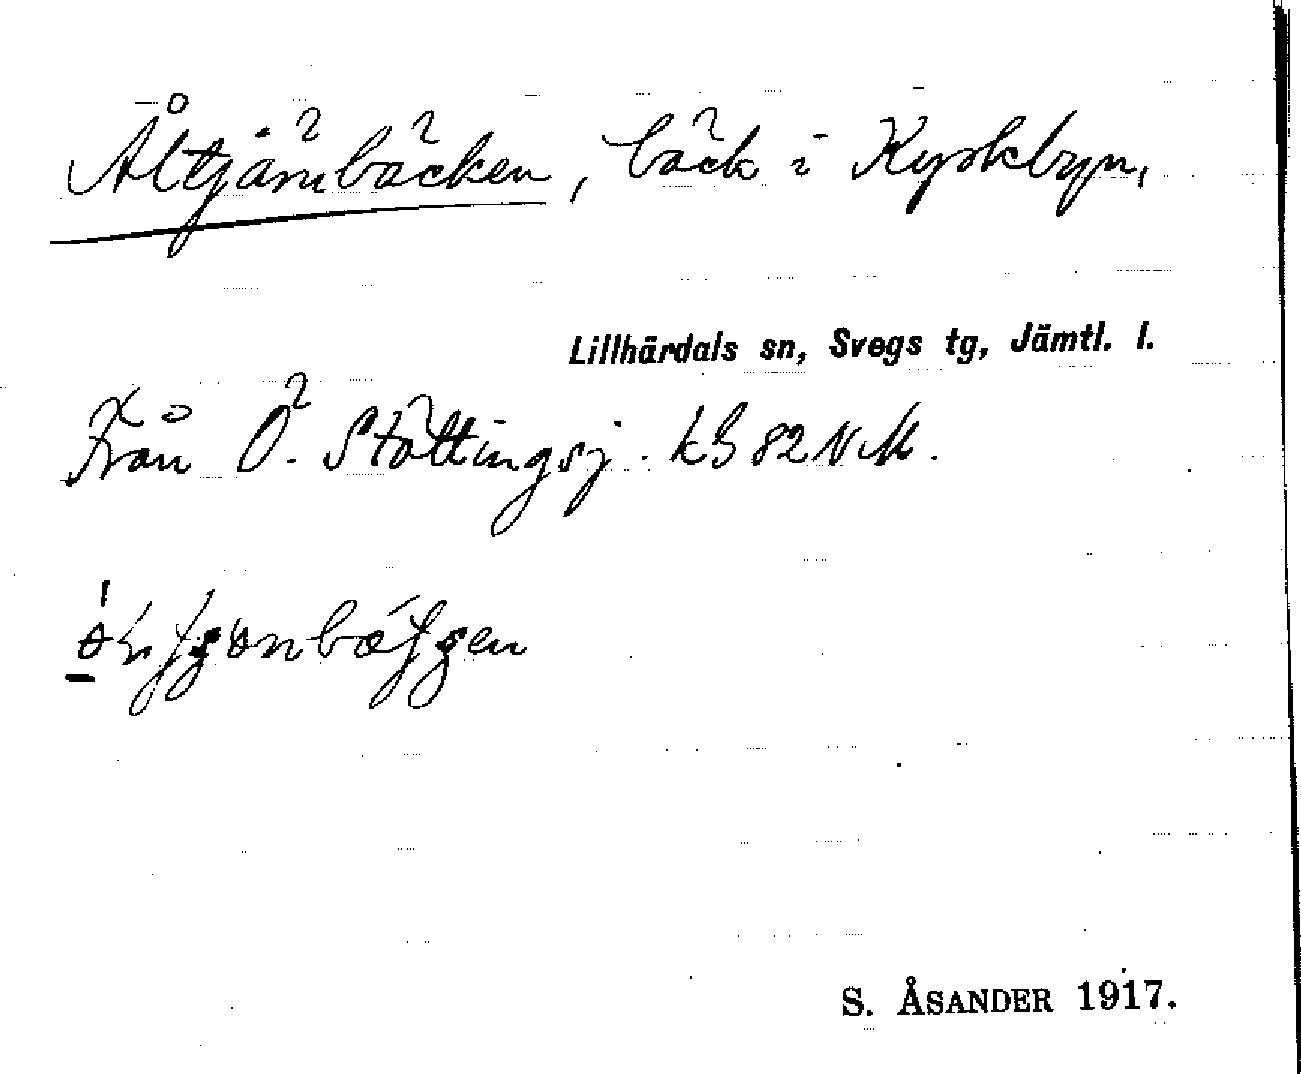 Åltjärnbäcken, bäck i Kyrkbyn,
Lillhärdals sn, Svegs tg, Jämtl. l.
Från Ö. Stöttingsj. kb 82 N M.
S. ÅSANDER 1917.